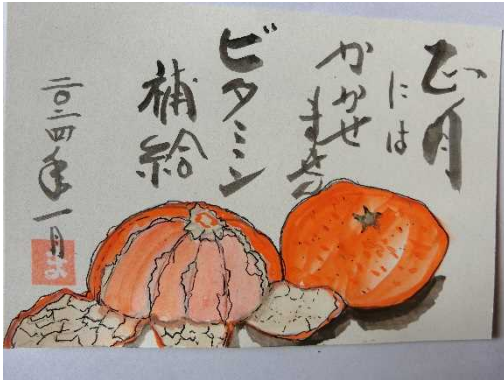 正月
には
かかせ
ません
ビタミン
補給
二〇二四年一月
よ